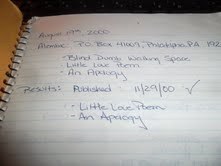 August 19th, 2000
P.O. Box Philadelphia, PA 192
- Blind During Working Space
- Little Love Poem
- An Apology
Results: Published: 11/29/00 ✓
- Little Love Poem
- An Apology